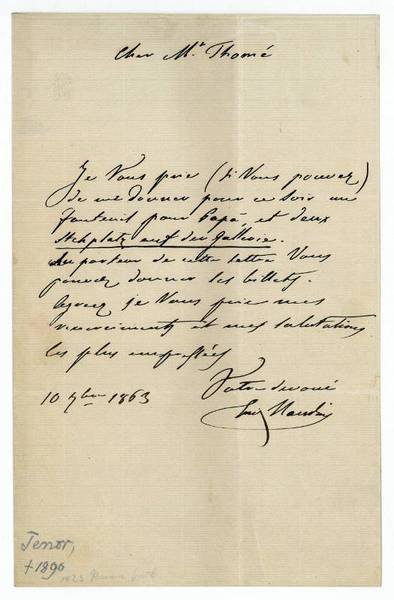 Cher Mr Thomé
Je Vous prie (si Vous pouvez)
de me donner pour ce soir un
fauteuil pour Papà, et deux
Stehplatz auf der Gallerie.
Au porteur de cette lettre Vous
pouvez donner les billets.
Agreez je Vous prie mes
remerciements et mes salutations
les plus empressées
Votre devoué
10 7bre 1863
Tenor,
+ 1890